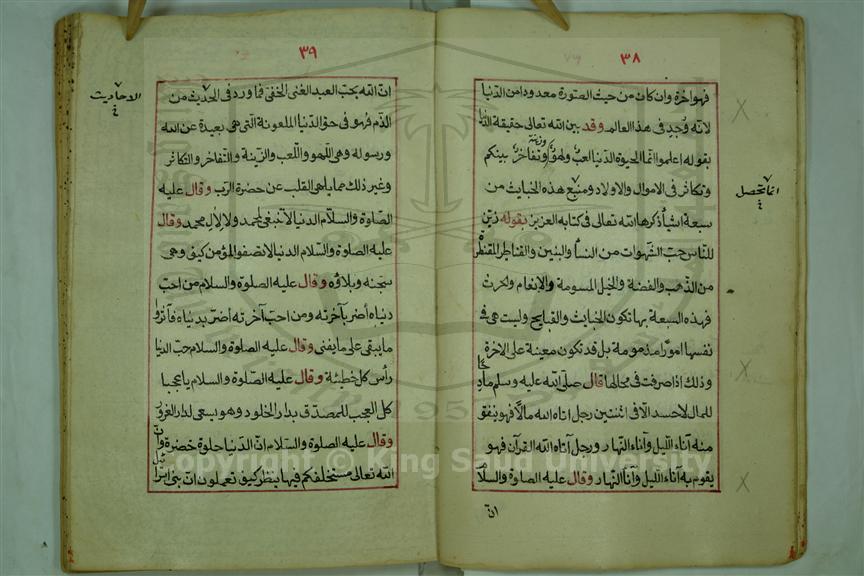 ٣٨
فهو اخرة وان كان من حيث الصورة معدودا من الدنيا
لانه وُجد فى هذا العالم وقد بين الله تعالى حقيقة الدنيا
بقوله اعلموا انما الحيوة الدنيا لعب ولهو وزينة وتفاخر بينكم
وتكاثر فى الاموال والاولاد ومنبع هذه الخباث من
انما تحصل
سبعة اشيا ذكرها الله تعالى فى كتابه العزيز بقوله زين
للناس حب الشهوات من النسا والبنين والقناطر المقنطرة
من الذهب والفضة والخيل المسومة والانعام والحرث
فهذه السبعة بها تكون الخباث والقبايح وليست هى فى
نفسها امورا مذمومة بل قد تكون معينة على الاخرة
وذلك اذا صرفت فى محالها قال صلى الله عليه وسلم
للمال لاحسد الا فى اثنتين رجل اتاه الله مالا فهو ينفق
منه آناء الليل وآناء النهار ورجل آتاه الله القرآن فهو
يقوم به آناء الليل وآنا النهار وقال عليه الصلوة والسلام
ان
٣٩
ان الله يحب العبد الغنى الخفى فما ورد فى الحديث من
الاحاديث
الذم فهو فى حق الدنيا الملعونة التى هى بعيدة عن الله
ورسوله وهى اللهو واللعب والزينة والتفاخر والتكاثر
وغير ذلك مما يلهى القلب عن حضرة الرب وقال عليه
الصلوة والسلام الدنيا لا تنبغى لمحمد ولا لال محمد وقال
عليه الصلوة والسلام الدنيا لا تصفو لمؤمن كيف وهى
سجنه وبلاؤه وقال عليه الصلوة والسلام من احب
دنياه أضر بآخرته ومن احب آخرته أضر بدنياه فآثروا
ما يبقى على ما يفنى وقال عليه الصلوة والسلام حب الدنيا
رأس كل خطيئة وقال عليه الصلوة والسلام يا عجبا
كل العجب للمصدق بدار الخلود وهو يسعى لدار الغرور
وقال عليه الصلوة والسلام ان الدنيا حلوة خضرة وان
الله تعالى مستخلفكم فيها ينظر كيف تعملون ان بنى اسرائيل
Copyright © King Saud University